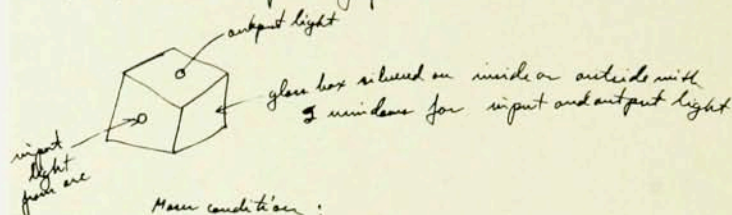 output light
glass box silvered on inside or outside with
2 windows for input and output light
input
light
from arc
Maser condition: